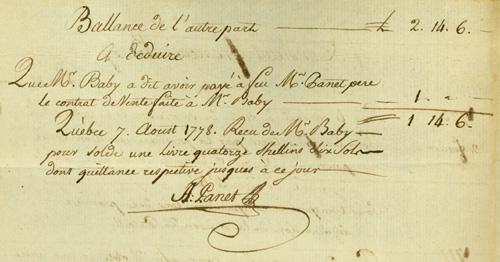 Ballance de l'autre part — £ 2. 14. 6.
A deduire
Que Mr. Baby a dit avoir payé à feu Mr. Panet pere
le contrat de Vente faite à Mr. Baby — 1. " "
1 14 6.
Québec 7. Aoust 1778. Recu de Mr. Baby
pour solde une livre quatorze Shellins dix Sols
dont quittance respective jusques à ce jour
A: Panet